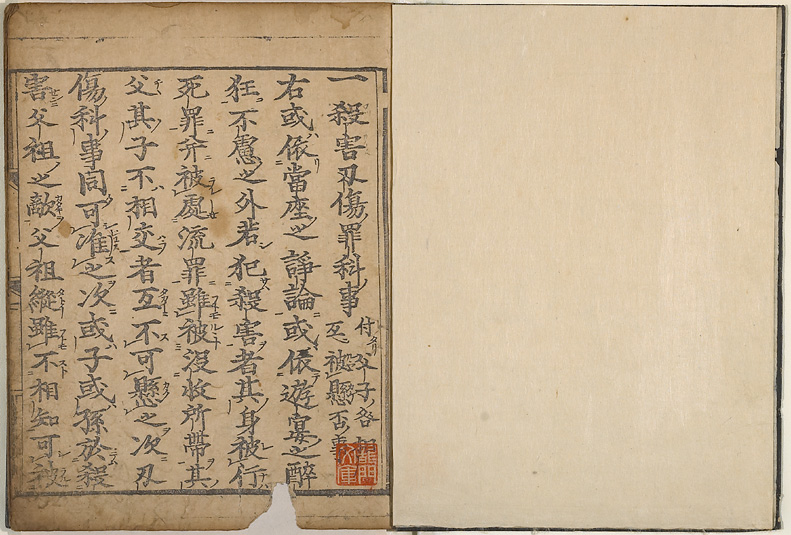 一 殺害刃傷罪科事
付父子咎相
互被懸否事
右或依當座之諍論或依遊宴之醉
狂不慮之外若犯殺害者其身被行
死罪并被處流罪雖被没收所帶其
父其子不相交者互不可懸之次刃
傷科事同可准之次或子或孫於殺
害父祖之敵父祖縱雖不相知可被
龍門
文庫